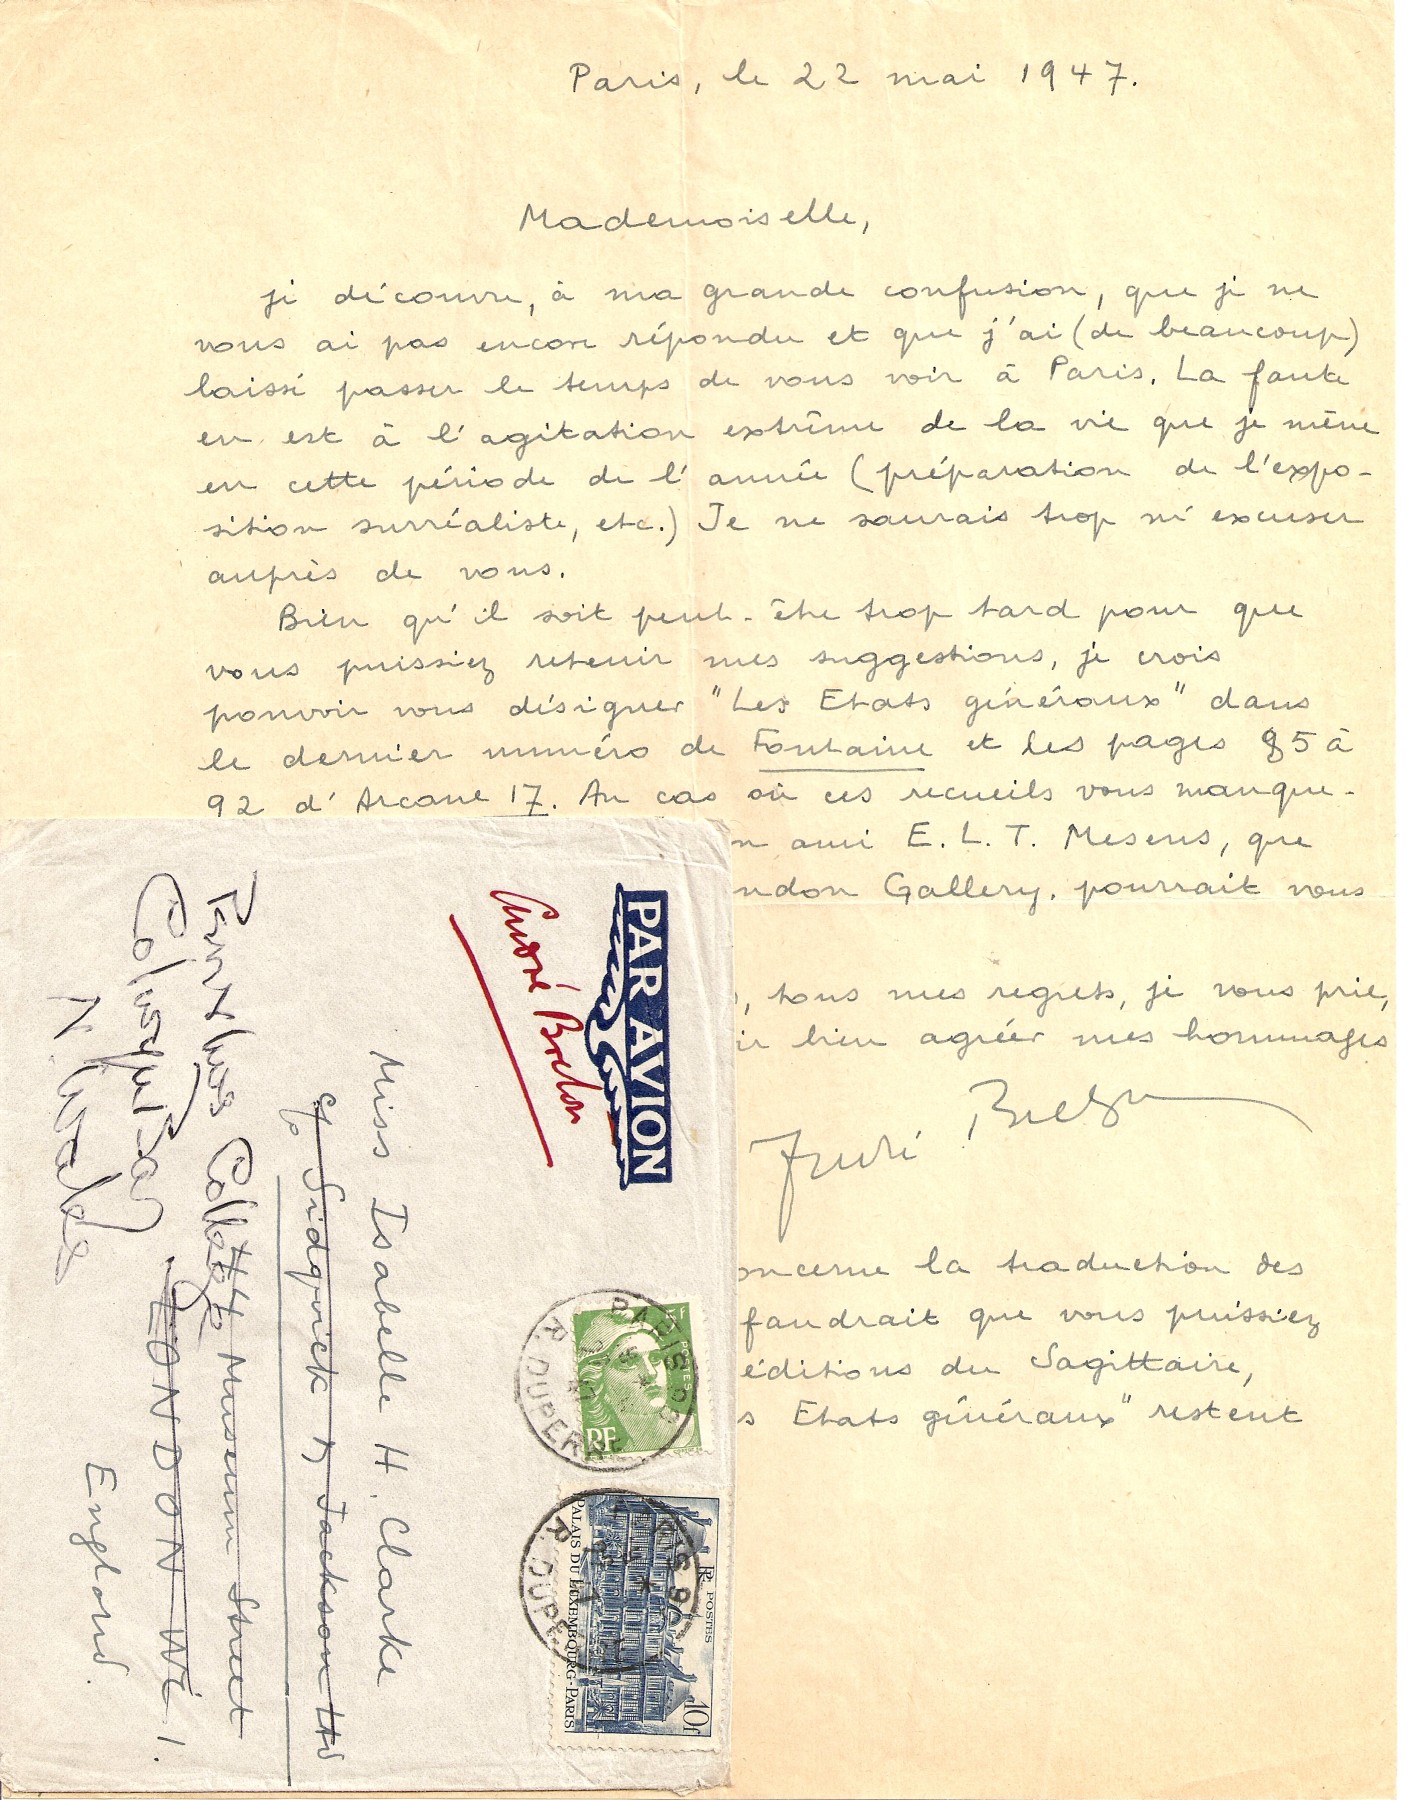 Paris, le 22 mai 1947.
Mademoiselle,
je découvre, à ma grande confusion, que je ne
vous ai pas encore répondu et que j'ai (de beaucoup)
laissé passer le temps de vous voir à Paris. La faute
en est à l'agitation extrême de la vie que je mène
en cette période de l'année (préparation de l'expo-
sition surréaliste, etc.) Je ne saurais trop m'excuser
auprès de vous.
Bien qu'il soit peut-être trop tard pour que
vous puissiez retenir mes suggestions, je crois
pouvoir vous désigner "Les Etats généraux" dans
le dernier numéro de Fontaine et les pages 85 à
92 d'Arcane 17. Au cas où ces recueils vous manque-
n ami E. L. T. Mesens, que
ndon Gallery, pourrait vous
, tous mes regrets, je vous prie,
ir bien agréer mes hommages
André Breton
oncerne la traduction des
faudrait que vous puissiez
éditions du Sagittaire,
s Etats généraux" restent
PAR AVION
André Breton
Miss Isabelle H. Clarke
c/o Sidgwick & Jackson Ltd
44 Museum Street
LONDON W.C. 1.
England.
Colwyn Bay
N. Wales
PARIS
R. DUPERRE
5F
POSTES
RF
PARIS 9
R. DUPERRE
RF POSTES
10f
PALAIS DU LUXEMBOURG-PARIS